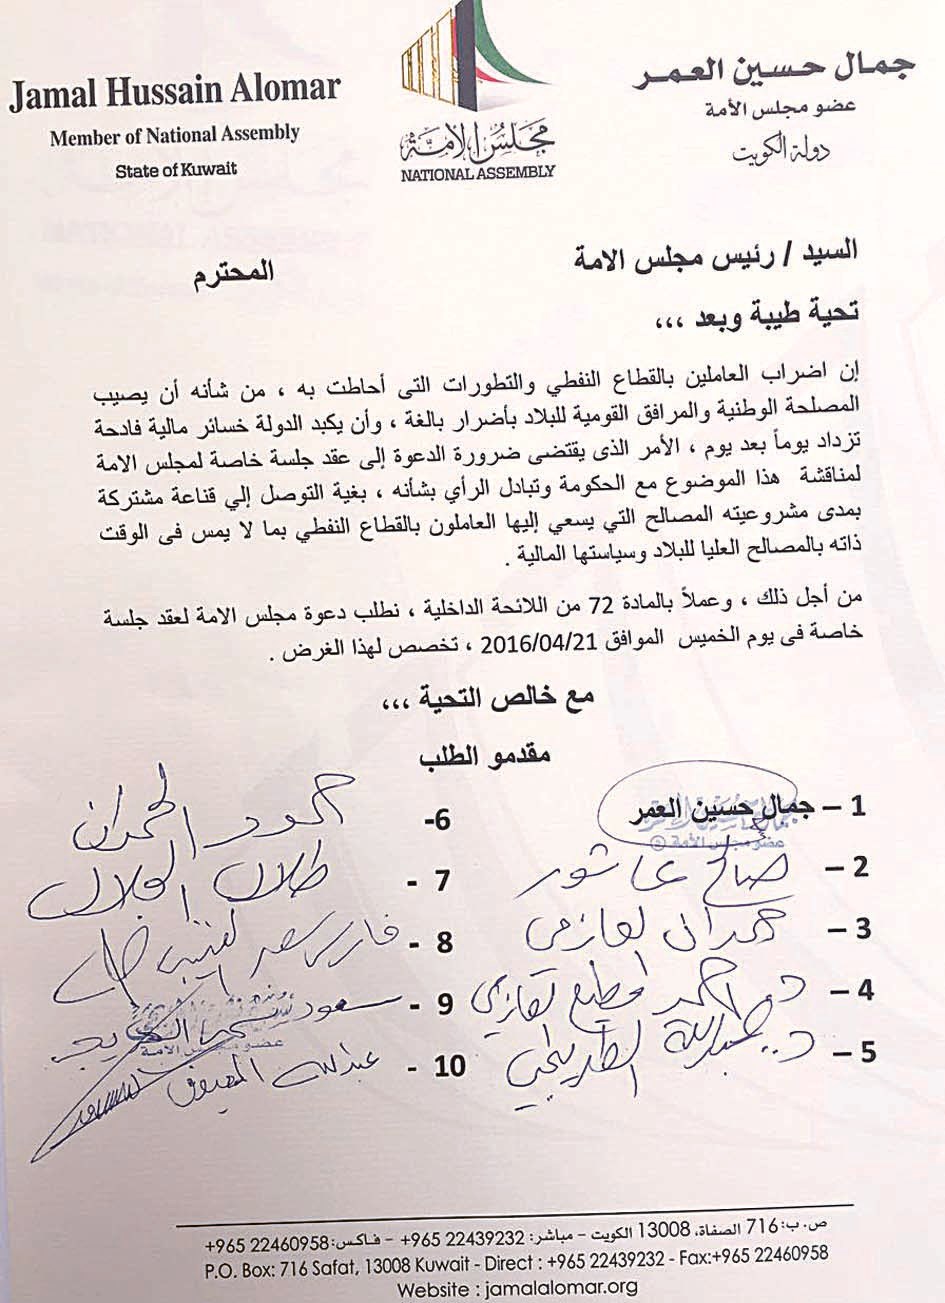 Jamal Hussain Alomar
Member of National Assembly
State of Kuwait
مجلس الأمة
NATIONAL ASSEMBLY
جمال حسين العمر
عضو مجلس الأمة
دولة الكويت
السيد / رئيس مجلس الامة المحترم
تحية طيبة وبعد ،،،
إن اضراب العاملين بالقطاع النفطي والتطورات التى أحاطت به ، من شأنه أن يصيب
المصلحة الوطنية والمرافق القومية للبلاد بأضرار بالغة ، وأن يكبد الدولة خسائر مالية فادحة
تزداد يوماً بعد يوم ، الأمر الذى يقتضى ضرورة الدعوة إلى عقد جلسة خاصة لمجلس الامة
لمناقشة هذا الموضوع مع الحكومة وتبادل الرأي بشأنه ، بغية التوصل إلي قناعة مشتركة
بمدى مشروعيته المصالح التي يسعي إليها العاملون بالقطاع النفطي بما لا يمس فى الوقت
ذاته بالمصالح العليا للبلاد وسياستها المالية .
من أجل ذلك ، وعملاً بالمادة 72 من اللائحة الداخلية ، نطلب دعوة مجلس الامة لعقد جلسة
خاصة فى يوم الخميس الموافق 2016/04/21 ، تخصص لهذا الغرض .
مع خالص التحية ،،،
مقدمو الطلب
1 – جمال حسين العمر
عضو مجلس الأمة
2 – صالح عاشور
3 – حمدان العازمي
4 – د. احمد مطيع العازمي
5 – د. عبدالله الطريجي
6- حمود الحمدان
7 - طلال الجلال
8 - فارس سعد العتيبي
9 - سعود
عضو مجلس الأمة
10 - عبدالله المعيوف
ص.ب: 716 الصفاة، 13008 الكويت – مباشر: 22439232 965+ – فاكس: 22460958 965+
P.O. Box: 716 Safat, 13008 Kuwait - Direct : +965 22439232 - Fax:+965 22460958
Website : jamalalomar.org